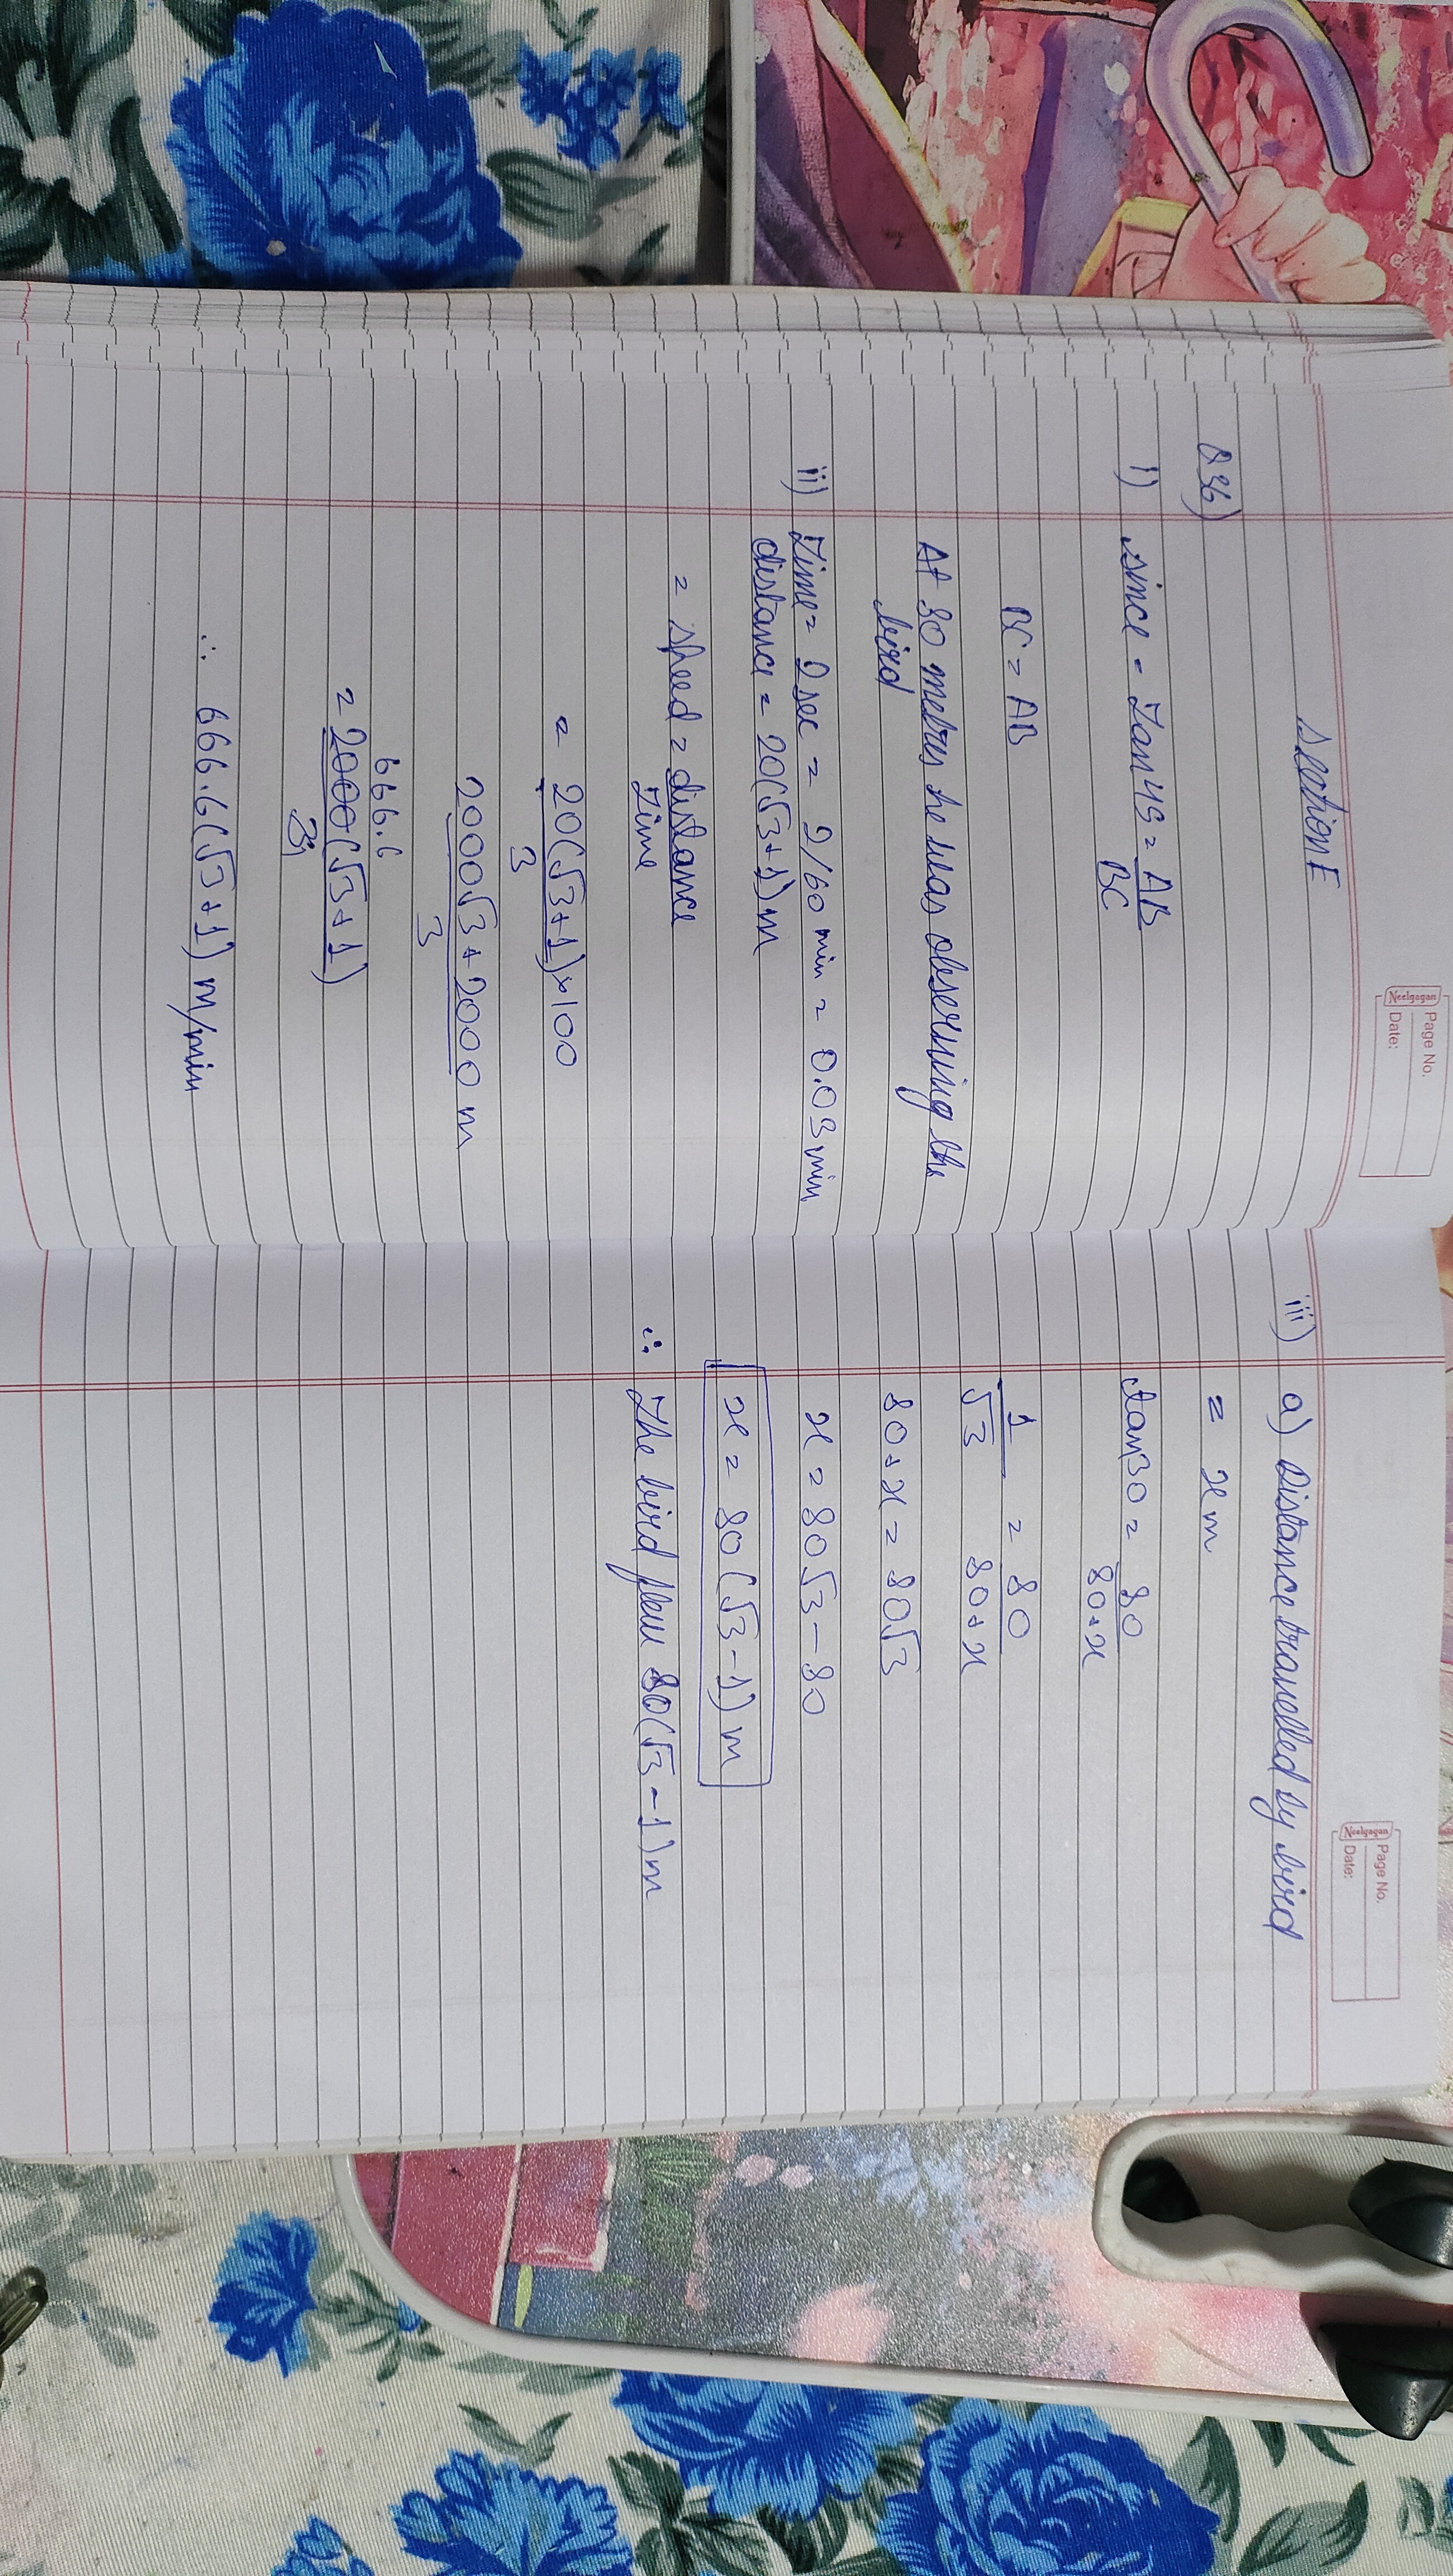 Neelgagan
Page No.
Date:
Section E
Q36)
i) since = Tan 45 = AB
BC
BC = AB
At 80 metres he was observing the
bird
ii) Time = 2 sec = 2/60 min = 0.03 min
distance = 20(√3+1) m
= speed = distance
Time
= 20(√3+1)×100
3
2000√3+2000 m
3
666.6
= 2000(√3+1)
3
∴ 666.6(√3+1) m/min
Neelgagan
Page No.
Date:
iii) a) Distance travelled by bird
= x m
tan 30 = 80
80+x
1 = 80
√3 80+x
80+x = 80√3
x = 80√3 - 80
x = 80(√3-1) m
∴ The bird flew 80(√3-1) m